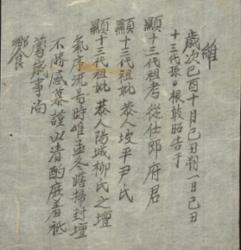 維
歲次己酉十月己丑朔一日己丑
十三代孫 根敎昭告于
顯十三代祖考從仕郞府君
顯十三代祖妣恭人坡平尹氏
顯十三代祖妣恭人陽城柳氏之壇
氣序流易時維孟冬蹟掃封塋
不勝感慕謹以淸酌庶羞祗
薦歲事尙
饗